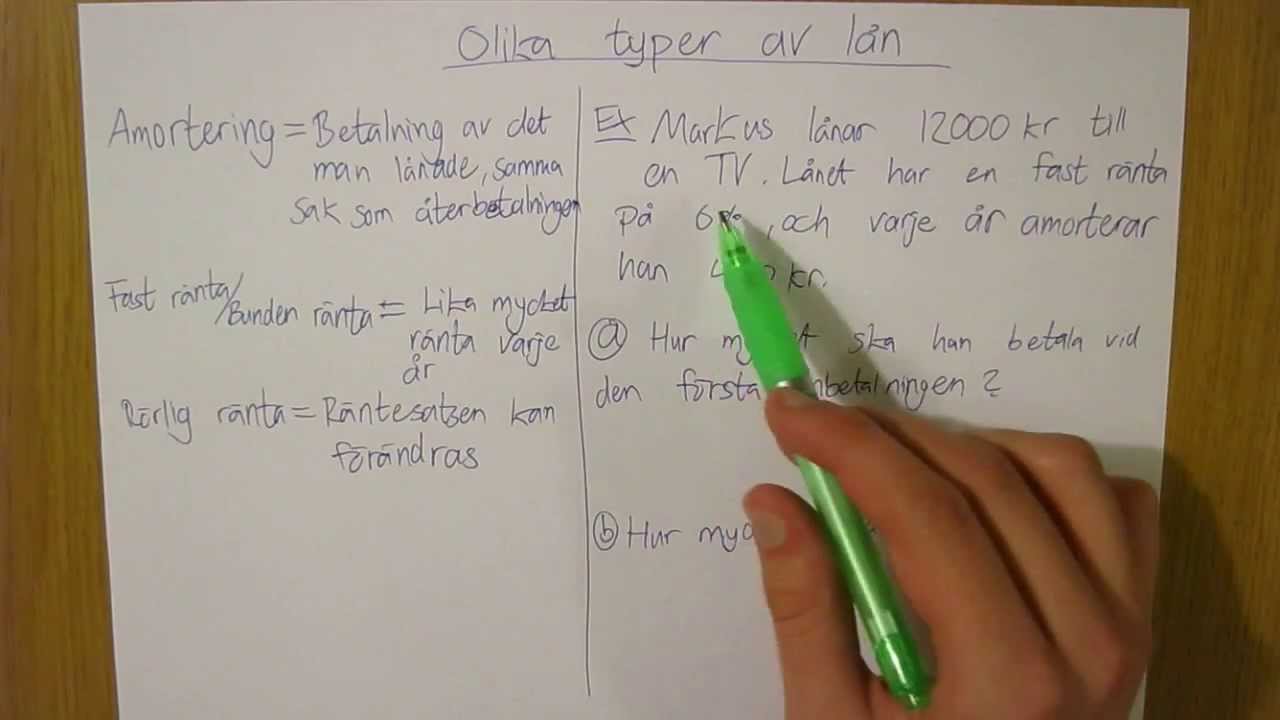 Olika typer av lån
Amortering = Betalning av det
man lånade, samma
sak som återbetalningen
Fast ränta/
Bunden ränta = Lika mycket
ränta varje
år
Rörlig ränta = Räntesatsen kan
förändras
Ex Markus lånar 12000 kr till
en TV. Lånet har en fast ränta
på 6%, och varje år amorterar
han kr.
a Hur ska han betala vid
den första
b Hur